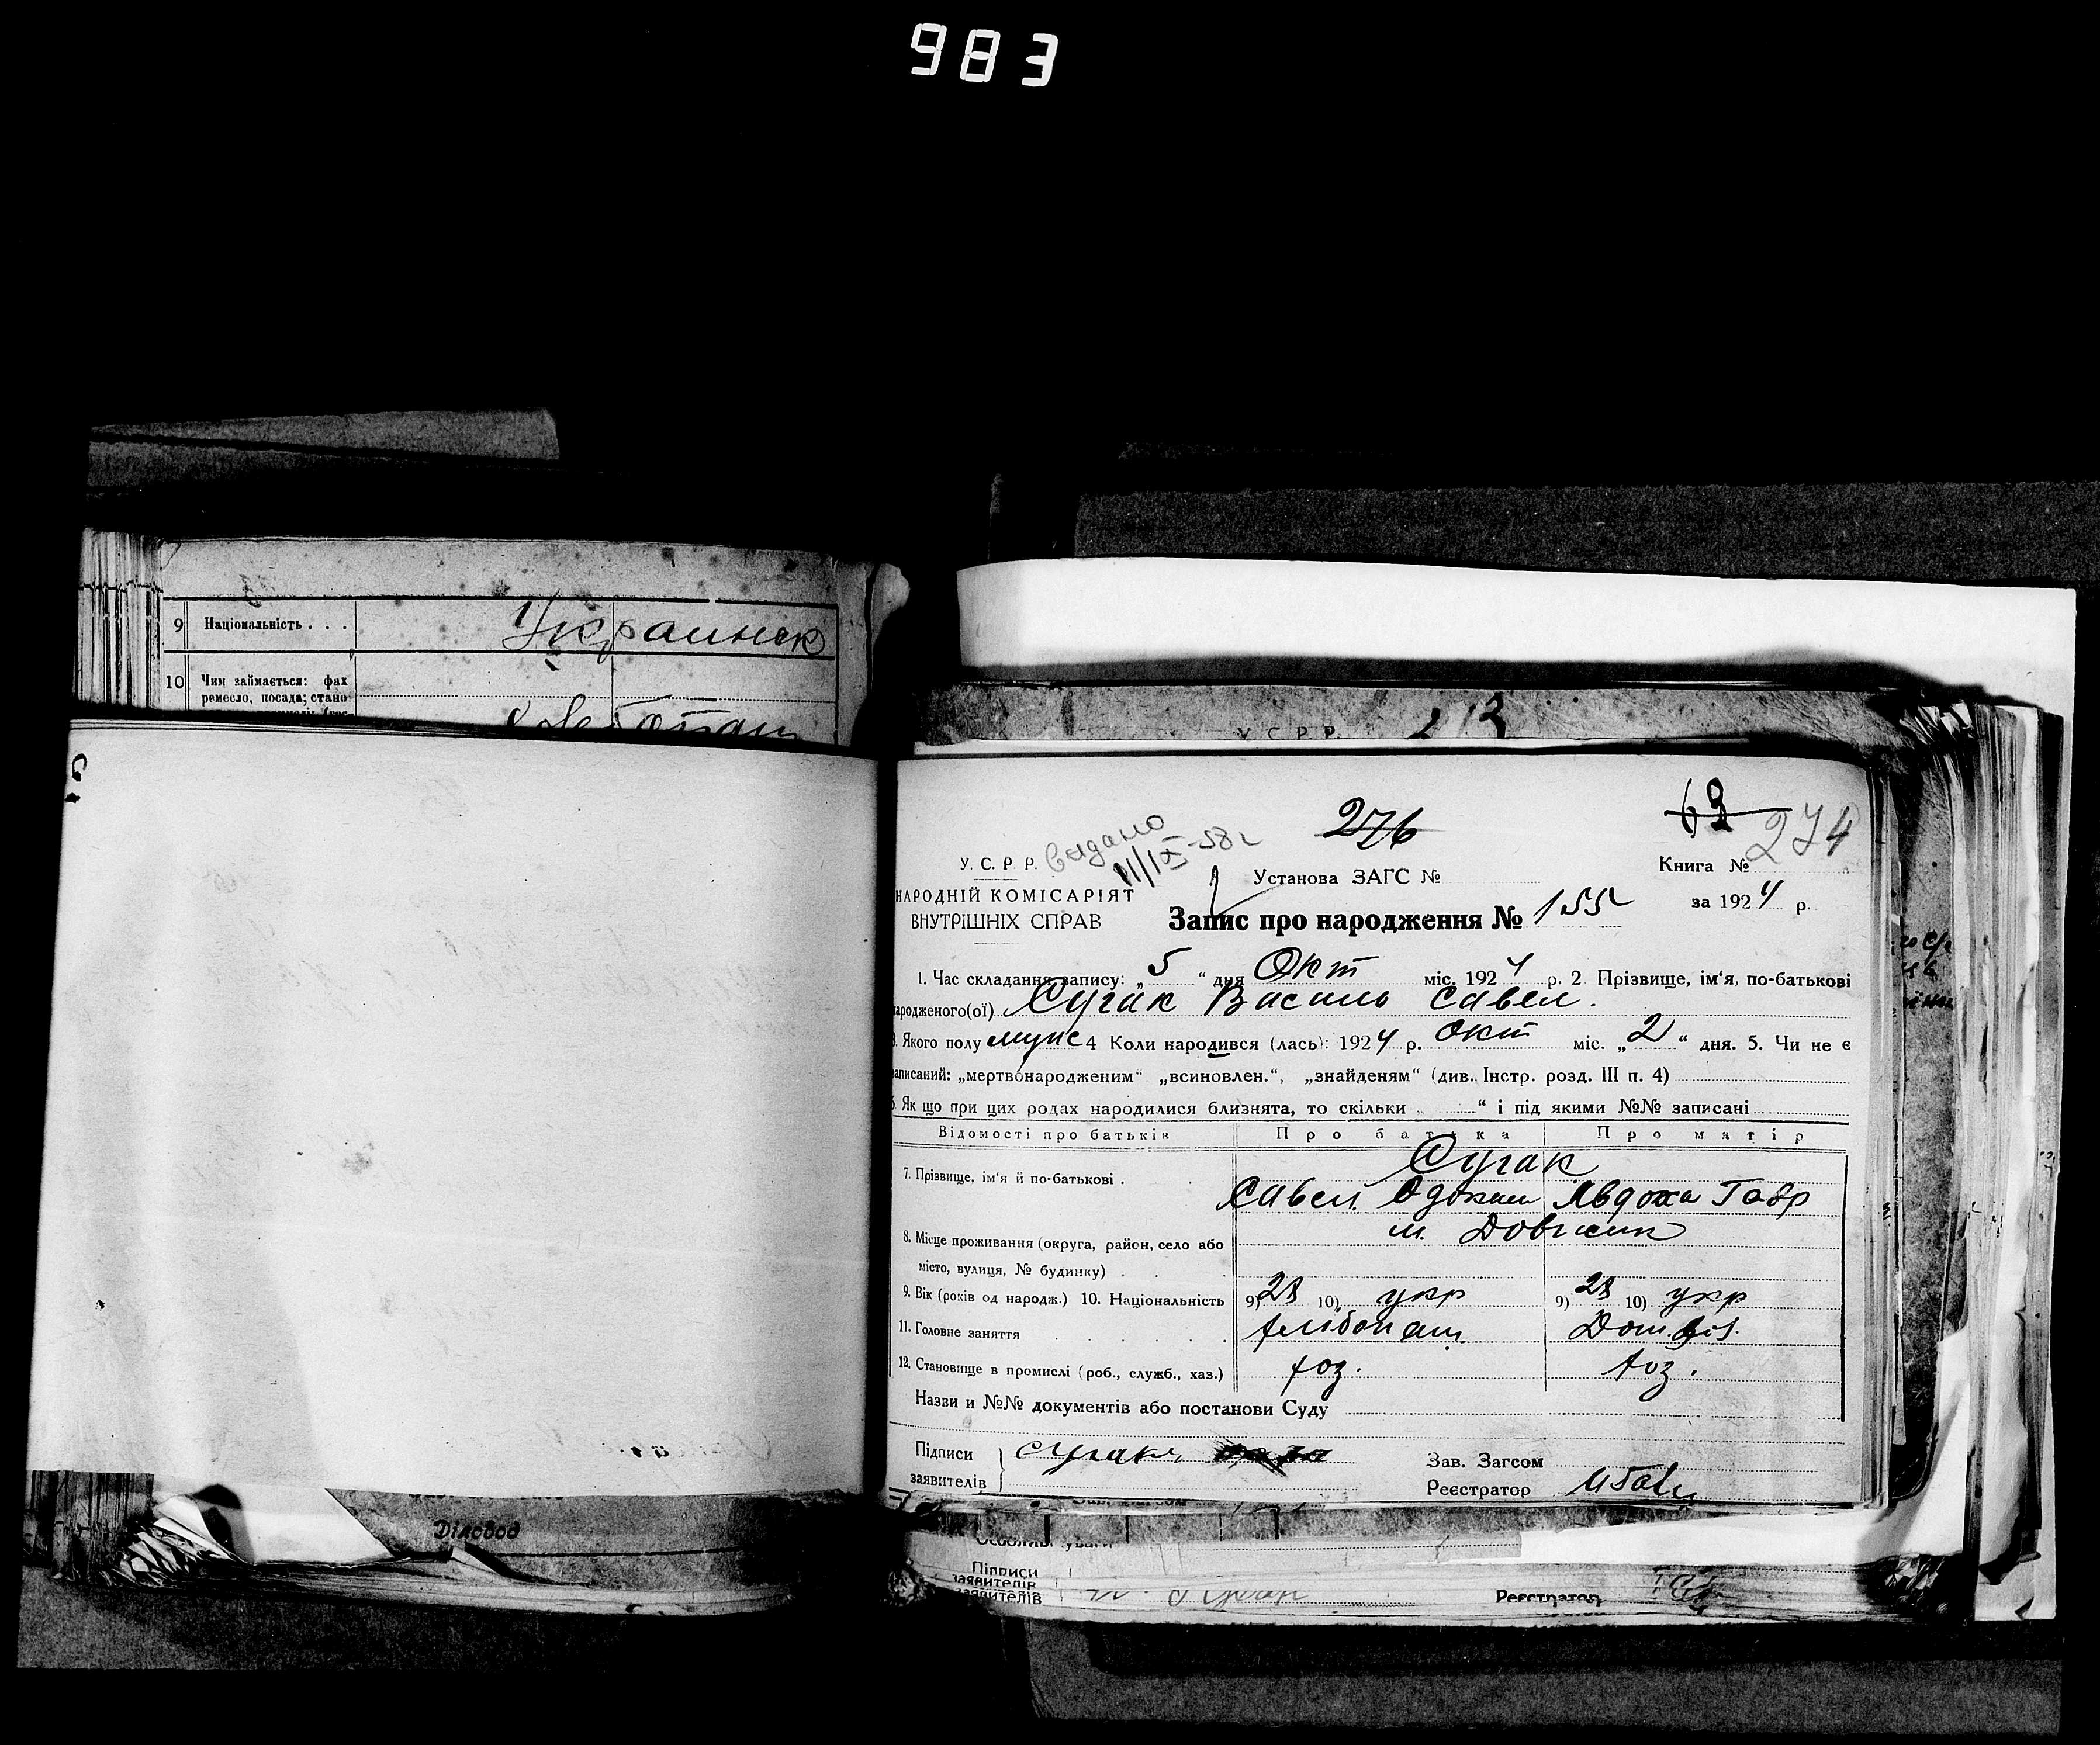 983
9 Національність . . .
Украинск
10 Чим займається: фах
ремесло, посада; стано
У С Р Р
276
63
274
Видано
11/IX-58 г
У. С. Р Р.
НАРОДНІЙ КОМІСАРІЯТ
ВНУТРІШНІХ СПРАВ
Установа ЗАГС №
Книга №
за 1924 р.
Запис про народження № 155
1. Час складання запису: „ 5 “ дня Окт міс. 1924 р. 2 Прізвище, ім‘я, по-батькові
народженого(ої) Сугак Василь Савел.
3. Якого полу муж 4 Коли народився (лась): 1924 р. окт міс. „ 2 “ дня. 5. Чи не є
записаний: „мертвонародженим“ „всиновлен.“, „знайденям“ (див. Інстр. розд. III п. 4)
6. Як що при цих родах народилися близнята, то скільки “ і під якими №№ записані
Відомості про батьків Про батька Про матір
7. Прізвище, ім‘я й по-батькові .
Сугак
Савел. Явдоха Гавр
8. Місце проживання (округа, район, село або
місто, вулиця, № будинку) .
м.
9. Вік (років од народж.) 10. Національність 9) 28 10) укр 9) 28 10) укр
11. Головне заняття
12. Становище в промислі (роб., служб., хаз.) хоз. хоз.
Назви и №№ документів або постанови Суду
Підписи
заявителів
Сугак
Зав. Загсом
Реєстратор
Діловод
Зав. Загсом
Особливі уваги
Підписи
заявителів
заявителів
Реєстратор